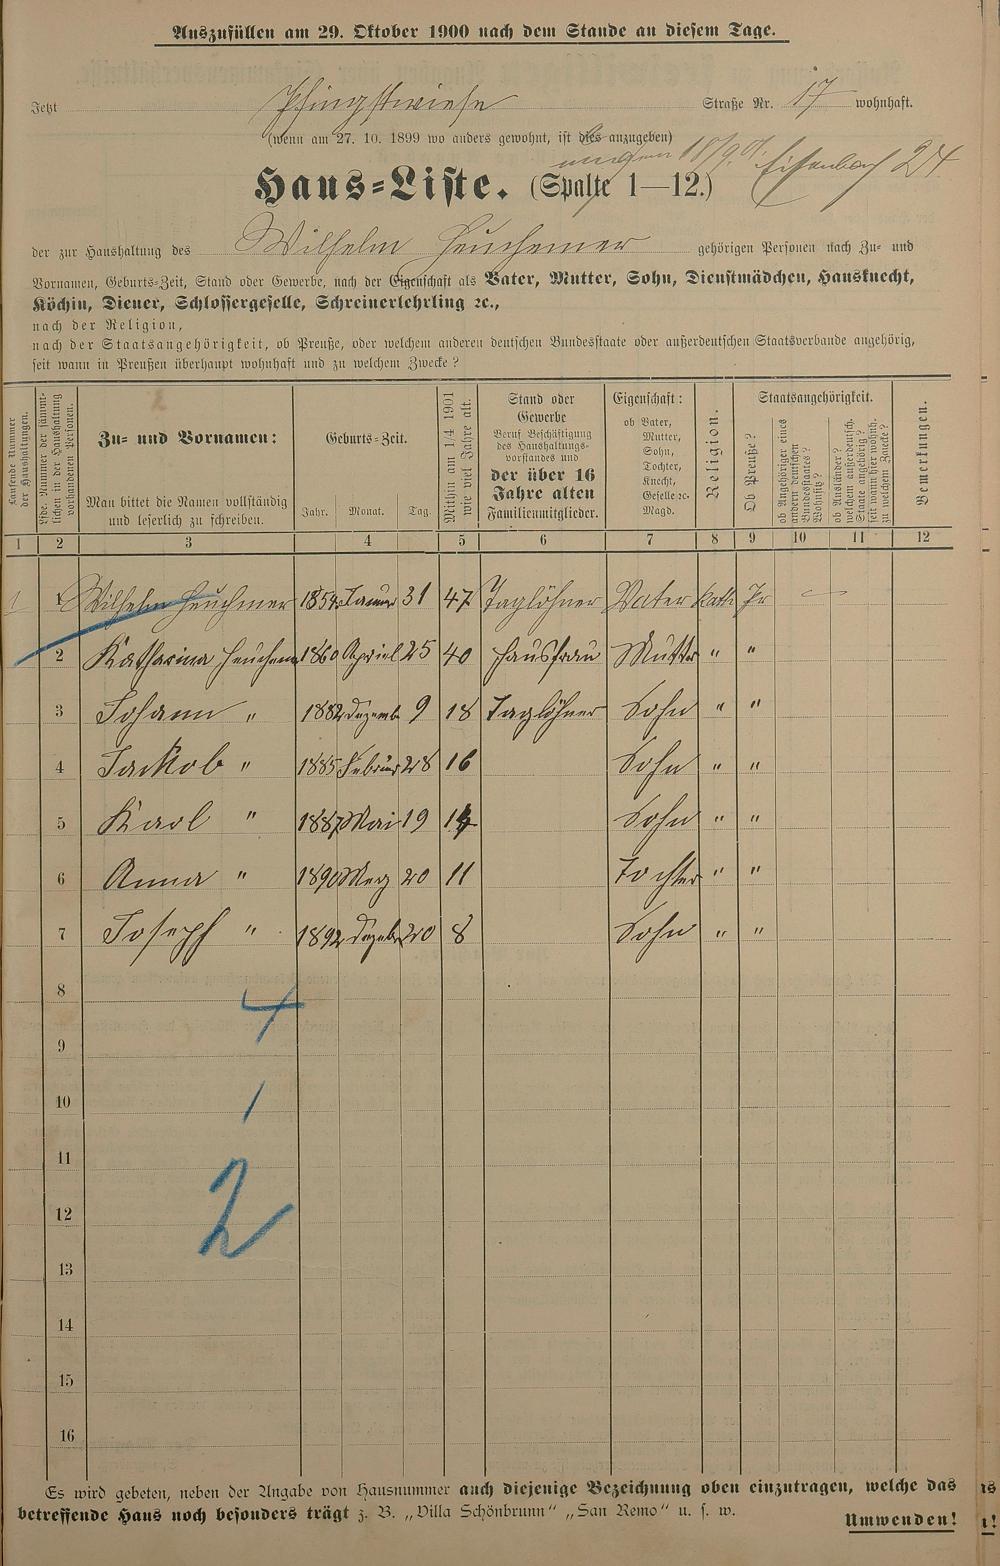 Auszufüllen am 29. Oktober 1900 nach dem Stande an diesem Tage.
Jetzt Pfingstwiese Straße Nr. 17 wohnhaft.
(wenn am 27. 10. 1899 wo anders gewohnt, ist dies anzugeben)
18/9. 01. Eisenbach 24
Haus=Liste. (Spalte 1—12.)
der zur Haushaltung des Wilhelm Heuchemer gehörigen Personen nach Zu= und
Vornamen, Geburts=Zeit, Stand oder Gewerbe, nach der Eigenschaft als Vater, Mutter, Sohn, Dienstmädchen, Hausknecht,
Köchin, Diener, Schlossergeselle, Schreinerlehrling ꝛc.,
nach der Religion,
nach der Staatsangehörigkeit, ob Preuße, oder welchem anderen deutschen Bundesstaate oder außerdeutschen Staatsverbande angehörig,
seit wann in Preußen überhaupt wohnhaft und zu welchem Zwecke?
Laufende Nummer der Haushaltungen.
Lfde. Nummer der sämmtlichen in der Haushaltung vorhandenen Personen.
Zu= und Vornamen:
Man bittet die Namen vollständig
und leserlich zu schreiben.
Geburts=Zeit.
Jahr. Monat. Tag.
Mithin am 1/4 1901 wie viel Jahre alt.
Stand oder
Gewerbe
Beruf Beschäftigung
des Haushaltungs-
vorstandes und
der über 16
Jahre alten
Familienmitglieder.
Eigenschaft:
ob Vater,
Mutter,
Sohn,
Tochter,
Knecht,
Geselle ꝛc.
Magd.
Religion.
Staatsangehörigkeit.
Ob Preuße?
ob Angehöriger eines andern deutschen Bundesstaates? Wohnsitz?
ob Ausländer? welchem außerdeutsch. Staate angehörig? seit wann hier wohnh. zu welchem Zwecke?
Bemerkungen.
1 2 3 4 5 6 7 8 9 10 11 12
1 1 Wilhelm Heuchmer 1854 Januar 31 47 Taglöhner Vater kath Pr —
2 Katharina Heuchem 1860 Apriel 25 40 Hausfrau Mutter " "
3 Johann " 1882 Dezemb 9 18 Taglöhner Sohn " "
4 Jackob " 1885 Februar 28 16 Sohn " "
5 Karl " 1887 Mai 19 14 Sohn " "
6 Anna " 1890 Merz 20 11 Tochter " "
7 Joseph " 1892 Dezebr 20 8 Sohn " "
8
4
9
10
1
11
12
2
13
14
15
16
Es wird gebeten, neben der Angabe von Hausnummer auch diejenige Bezeichnung oben einzutragen, welche das
betreffende Haus noch besonders trägt z. B. „Villa Schönbrunn“ „San Remo“ u. s. w.
Umwenden!